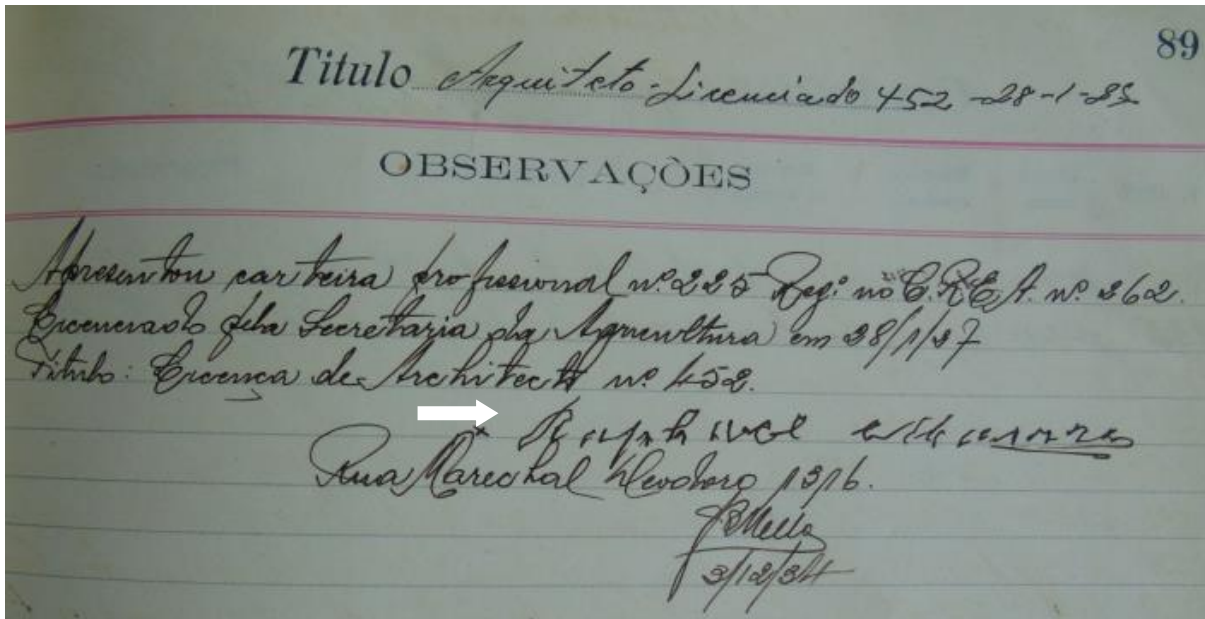 89
Titulo Arquiteto-Licenciado 452 -28-1-
OBSERVAÇÕES
Apresentou carteira profissional nº 225 Reg.º no C.R.E.A. nº
pela Secretaria da Agricultura em
Titulo: Licença de Architecto nº 452.
Rua Marechal Deodoro 1316.
3/12/34